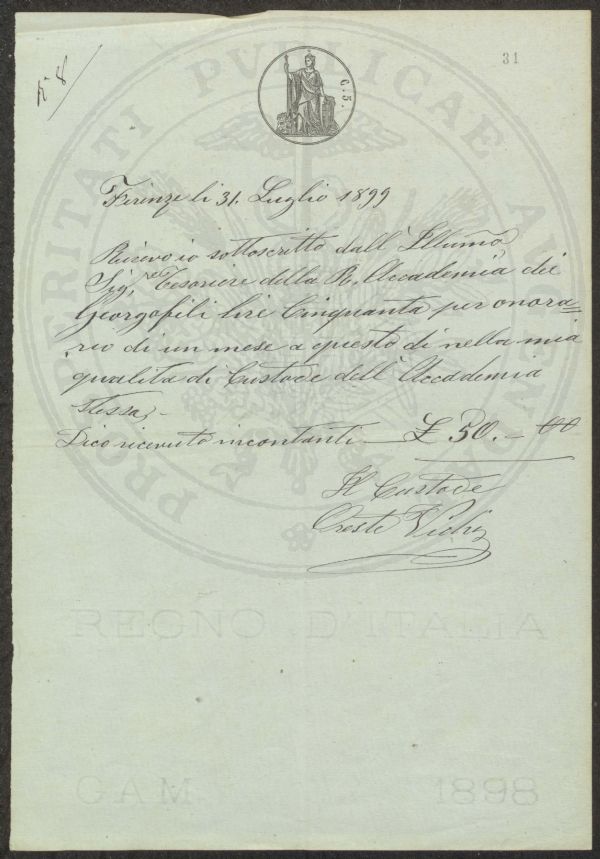 N 8
31
C. 5.
PROSPERITATI PUBLICAE AUGENDAE
Firenze li 31. Luglio 1899
Ricevo io sottoscritto dall' Illumo
Sig.re Tesoriere della R. Accademia dei
Georgofili lire Cinquanta per onora=
rio di un mese a questo dì nella mia
qualità di Custode dell' Accademia
stessa,-
Dico ricevuto in contanti — £ 50. - 00
Il Custode
Oreste Vichi
REGNO D'ITALIA
CAM 1898